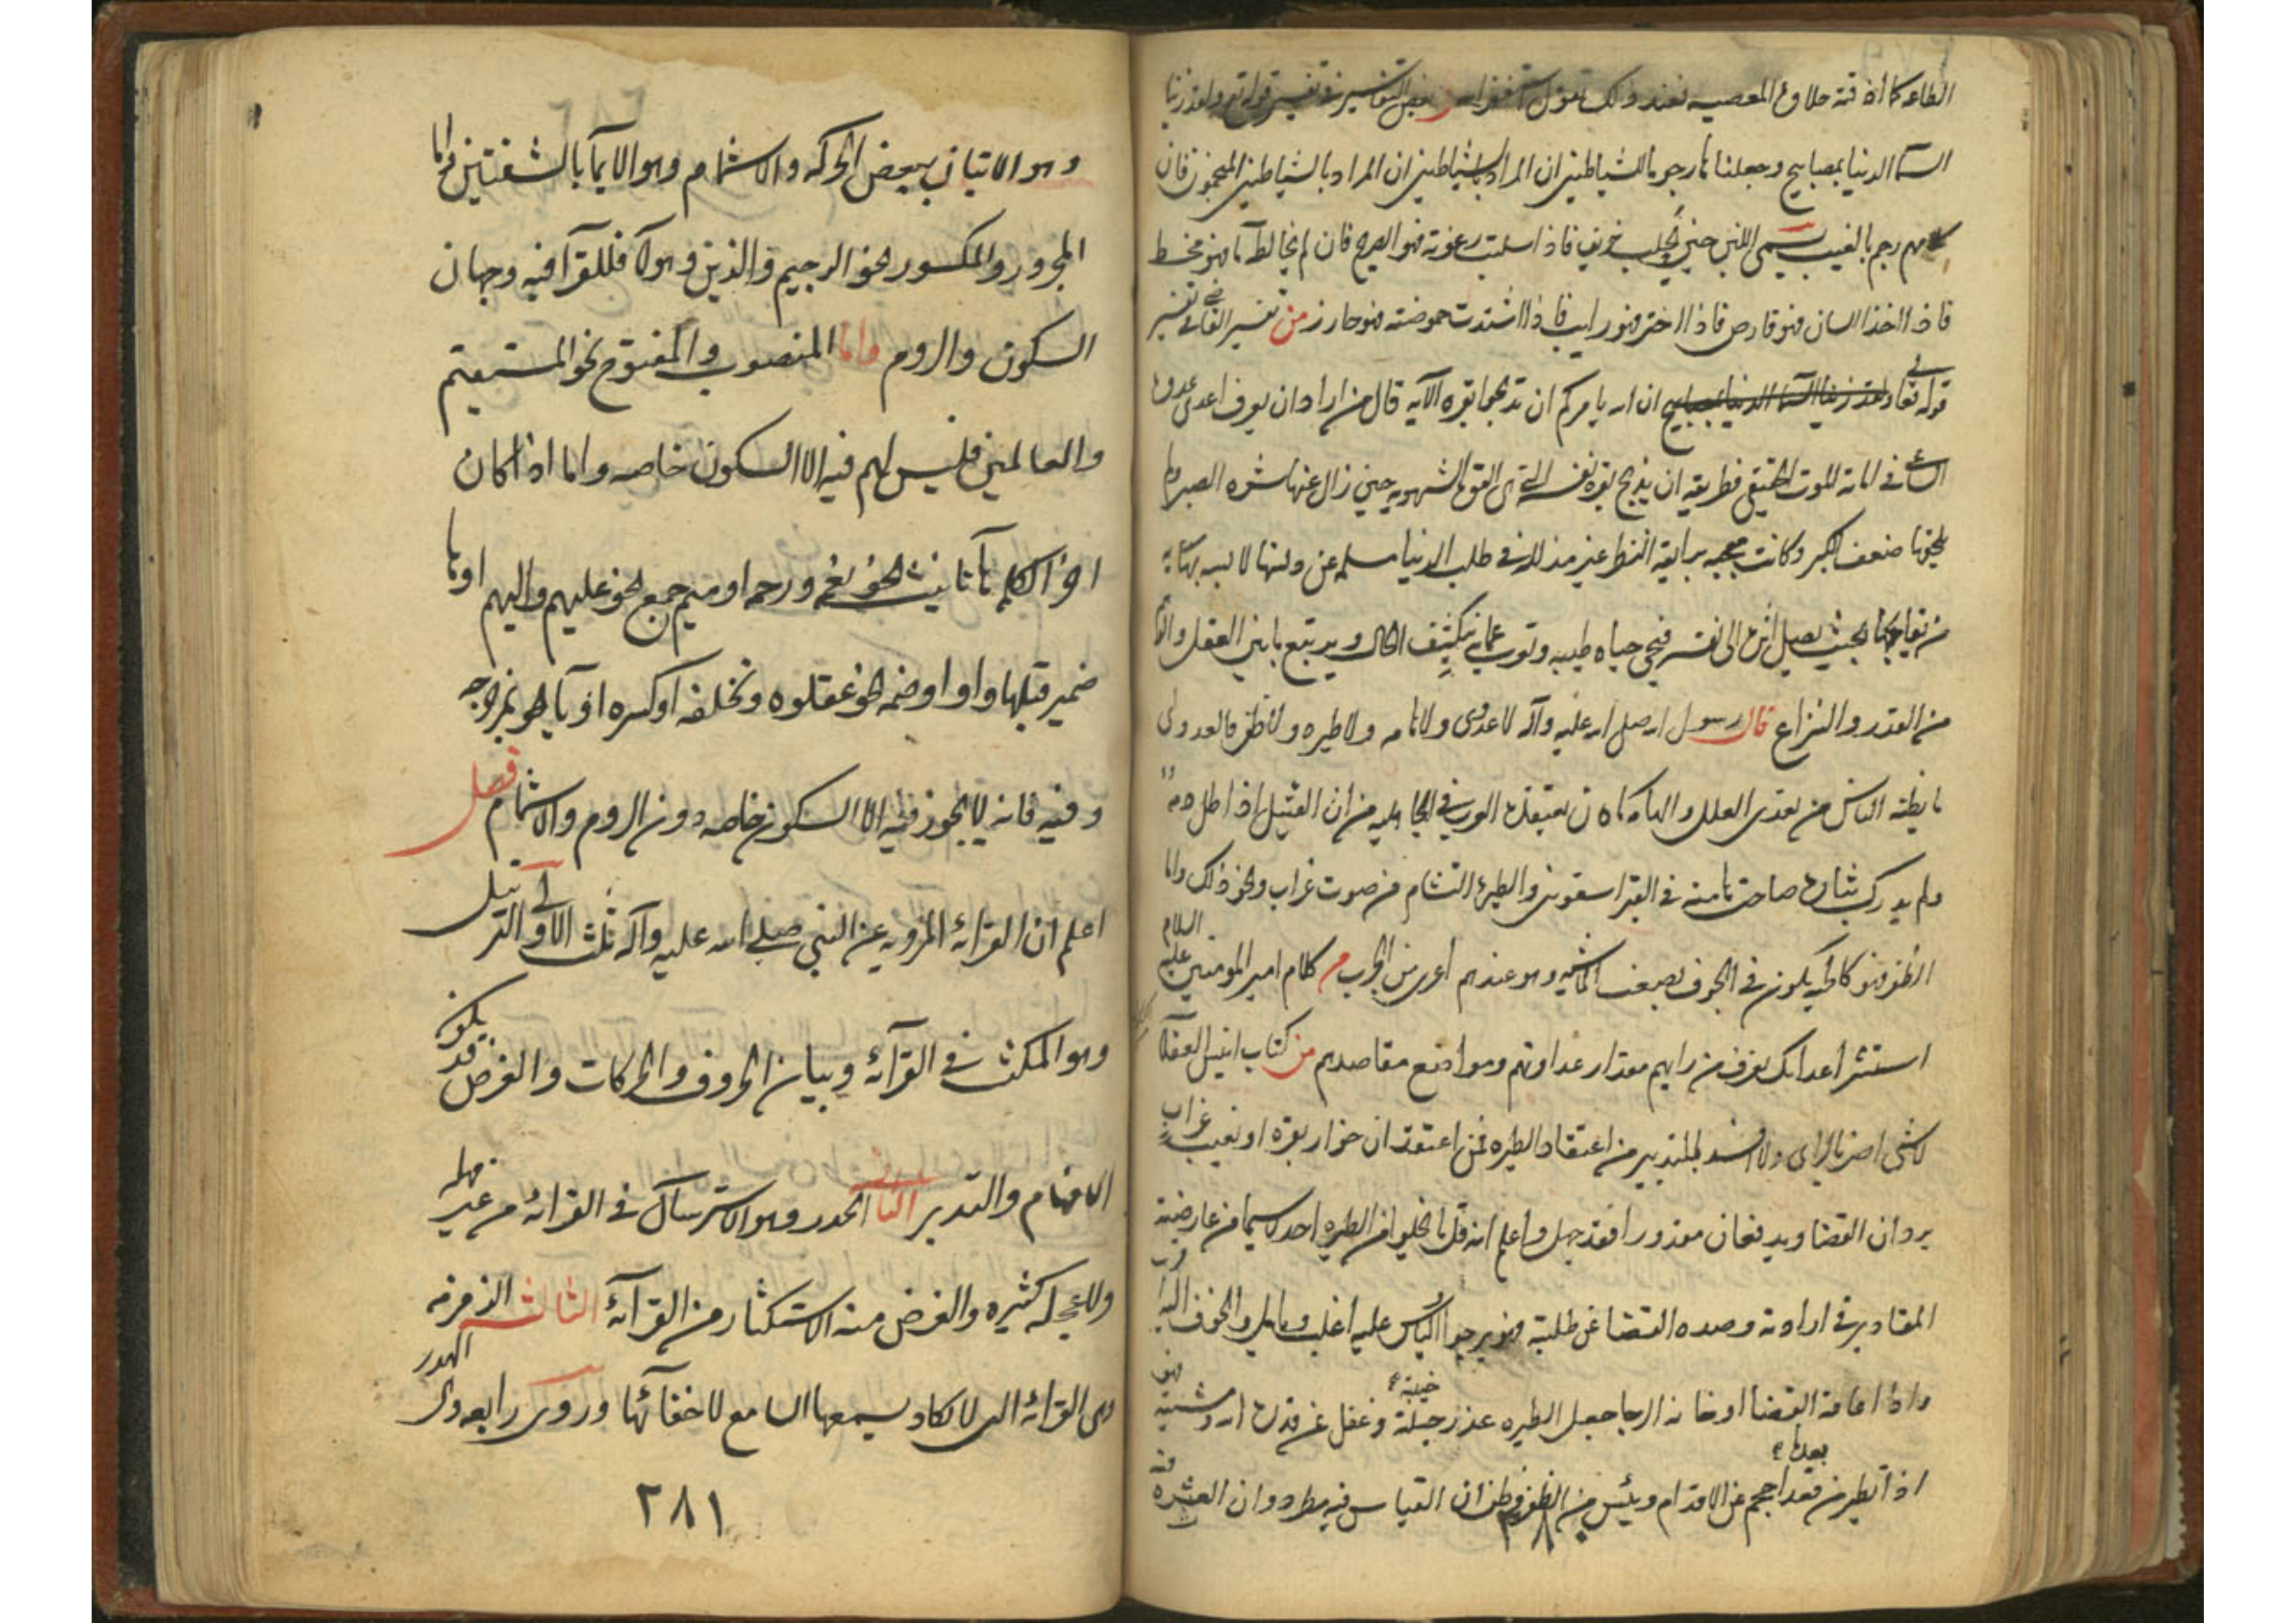 الطاعه كما اذقته حلاوة المعصيه فعند ذلك تقول استغفر الله من بعض التفاسير في تفسير قوله تع ولقد زينا
السمآ الدنيا بمصابيح وجعلناها رجوما للشياطين ان المراد بالشياطين ان المراد بالشياطين المنجمون فان
كلامهم رجم بالغيب يسمى اللبن حين يحلب صريف فاذا سكنت رغوته فهو الصريح فان لم يخالطه ما فهو محض
فاذا اخذ اللسان فهو قارص فاذا خثر فهو رايب فاذا اشتدت حموضته فهو حازر من تفسير القاضي في تفسير
قوله تعالى ولقد زينا السمآ الدنيا بمصابيح ان الله يامركم ان تذبحوا بقره الآيه قال من اراد ان يعرف اعدى عدوه
الساعي في اماتته الموت الحقيقي فطريقه ان يذبح بقرة نفسه التي هي القوة الشهويه حين زال عنها شره الصبا ولم
يلحقها ضعف الكبر وكانت معجبه رايقة المنظر غير مذلله في طلب الدنيا مسلمه عن دنسها لا سمه بها
من بحيث يصل اثره الى نفسه فيحيى حياه طيبه وتعرب عما به ينكشف الحال ويرتفع ما بين العقل والوهم
من التدر والنزاع قال رسول الله صلى الله عليه وآله لا عدوى ولا هامه ولا طيره ولا صفر فالعدوى
ما يظنه الناس من تعدى العلل والهامه ما كان يعتقده العرب في الجاهليه من ان القتيل اذا طل دمه
ولم يدرك بثاره صاحت هامته في القبر اسقوني والطيره التشام من صوت غراب ونحو ذلك واما
الصفر فهو كالحيه يكون في الجوف يصيب الماشيه وهو عندهم اعدى من الجرب من كلام امير المومنين عليه السلام
استشر اعداءك تعرف من رايهم مقدار عداوتهم ومواضع مقاصدهم من كتاب انيس العقلا
لا شى اضر بالراى ولا افسد للتدبير من اعتقاد الطيره فمن اعتقد ان خوار بقره او نعيب غراب
يردان القضا ويدفعان مقدورا فقد جهل واعلم انه قل ما يخلوا من الطيره احد لا سيما من عارضته
المقادير في ارادته وصده القضا عن طلبته فهو يرجوا والياس عليه اغلب ويامل والخوف اليه اقرب
واذا عاقه القضا او خانه الرجا جعل الطيره عذر خيبته وغفل عن قدرة الله ومشيته فهو
اذا تطير من بعدها احجم عن الاقدام ويئس من الظفر وظن ان القياس فيه مطرد وان العثره فيه
٢٨٠
وهو الاتيان ببعض الحركه والاشمام وهو الايمآ بالشفتين واما
المجرور والمكسور نحو الرحيم والذين وهولآ فللقرآ فيه وجهان
السكون والروم واما المنصوب والمفتوح نحو المستقيم
والعالمين فليس لهم فيه الا السكون خاصه واما اذا كان
اخر الكلمه هآ تانيث نحو نعمه ورحمه او ميم جمع نحو عليهم واليهم او ها
ضمير قبلها واوا او ضمه نحو عقلوه ونخلفه او كسره او يآ نحو بمزحزحه
وفيه فانه لا يجوز فيه الا السكون خاصه دون الروم والاشمام فصل
اعلم ان القرائه المرويه عن النبي صلى الله عليه وآله ثلث الاولى الترتيل
وهو المكث في القرآئه وبيان الحروف والحركات والغرض قد يكون
الافهام والتدبر الثانى الحدر وهو الاسترسال في القرائه من غير مهله
ولا عجله كثيره والغرض منه الاستكثار من القرآئه الثالث الزمزمه
وهى القرائه التى لا يكاد يسمعها السامع لاخفائها وروى رابعه وهى الهدر
٢٨١